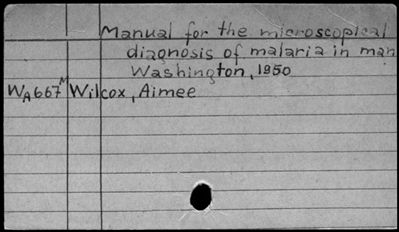 Manual for the microscopical
diagnosis of malaria in man
Washington, 1950
WA667M Wilcox, Aimee